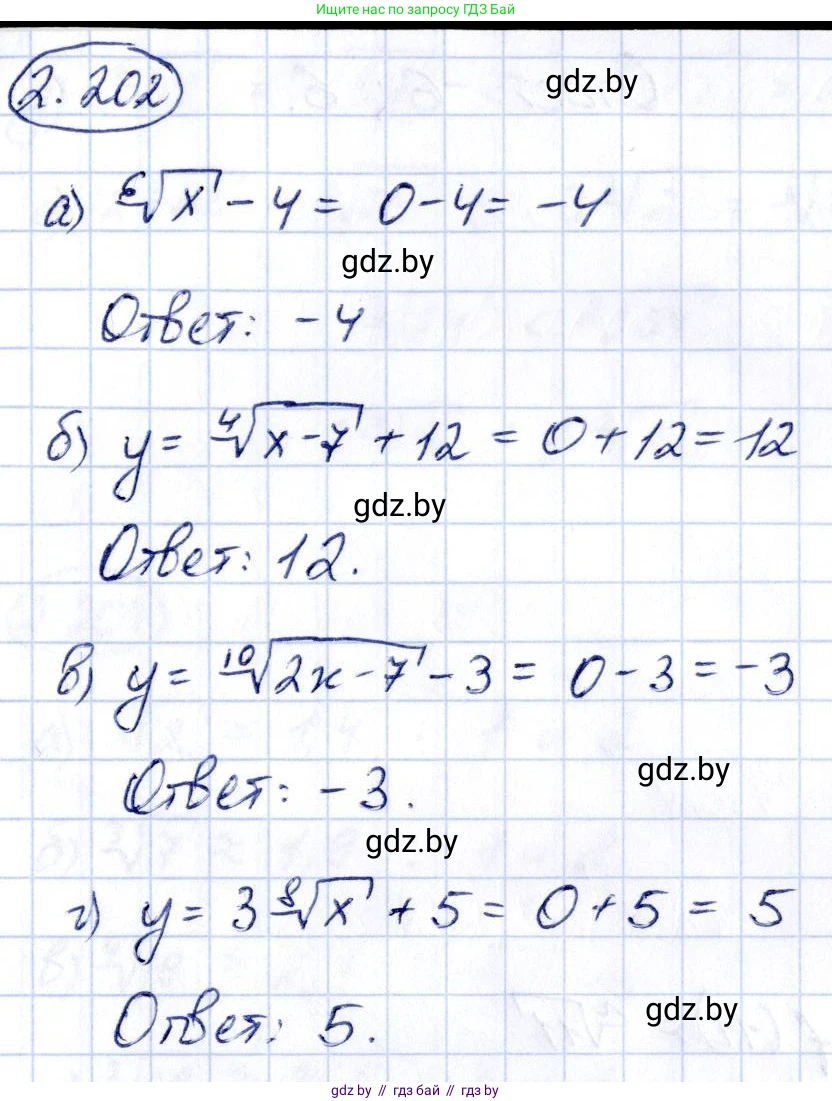 Ищите нас по запросу ГДЗ Бай
2.202
gdz.by
а) ⁶√x - 4 = 0 - 4 = -4
gdz.by
Ответ: -4
б) y = ⁴√(x-7) + 12 = 0 + 12 = 12
gdz.by
Ответ: 12.
в) y = ¹⁰√(2x-7) - 3 = 0 - 3 = -3
gdz.by
Ответ: -3.
gdz.by
г) y = 3 ⁸√x + 5 = 0 + 5 = 5
gdz.by
Ответ: 5.
gdz.by // гдз бай // гдз by